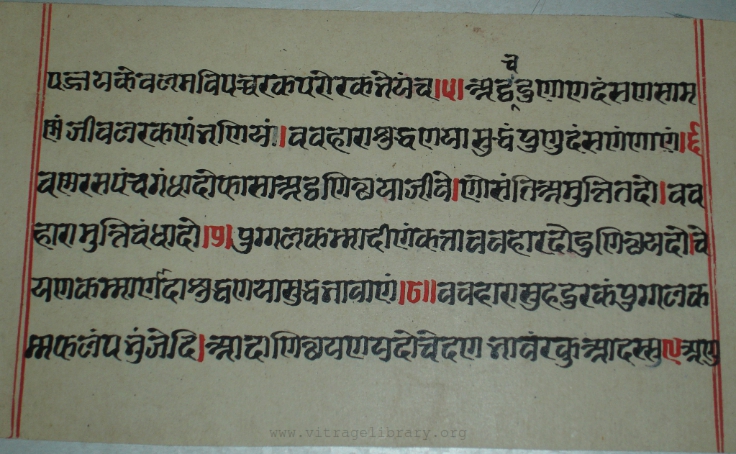 पज्जयकेवलमविपच्चरकपरोरकभेयंच।५।अट्ठच्चदुणाणदंसणसाम
णंजीवलरकणंभणियं।ववहाराशुद्धणयासुद्धंपुणुदंसणंणाणं।६
वणरसपंचगंधादोफासाअट्ठणिछयाजीवे।णोसंतिअमुत्तितदो।वव
हारामुत्तिबंधादो।७।पुग्गलकम्मादीणंकत्ताववहारदोदुणिछयदो।चे
यणकम्माणंदाशुद्धणयासुद्धभावाणं।८॥ववहारासुहदुरकंपुग्गलक
म्मफलंपभुंजेदि।आदाणिछयणयदोचेदणभावंरकुआदस्स९अणु
www.vitragelibrary.org